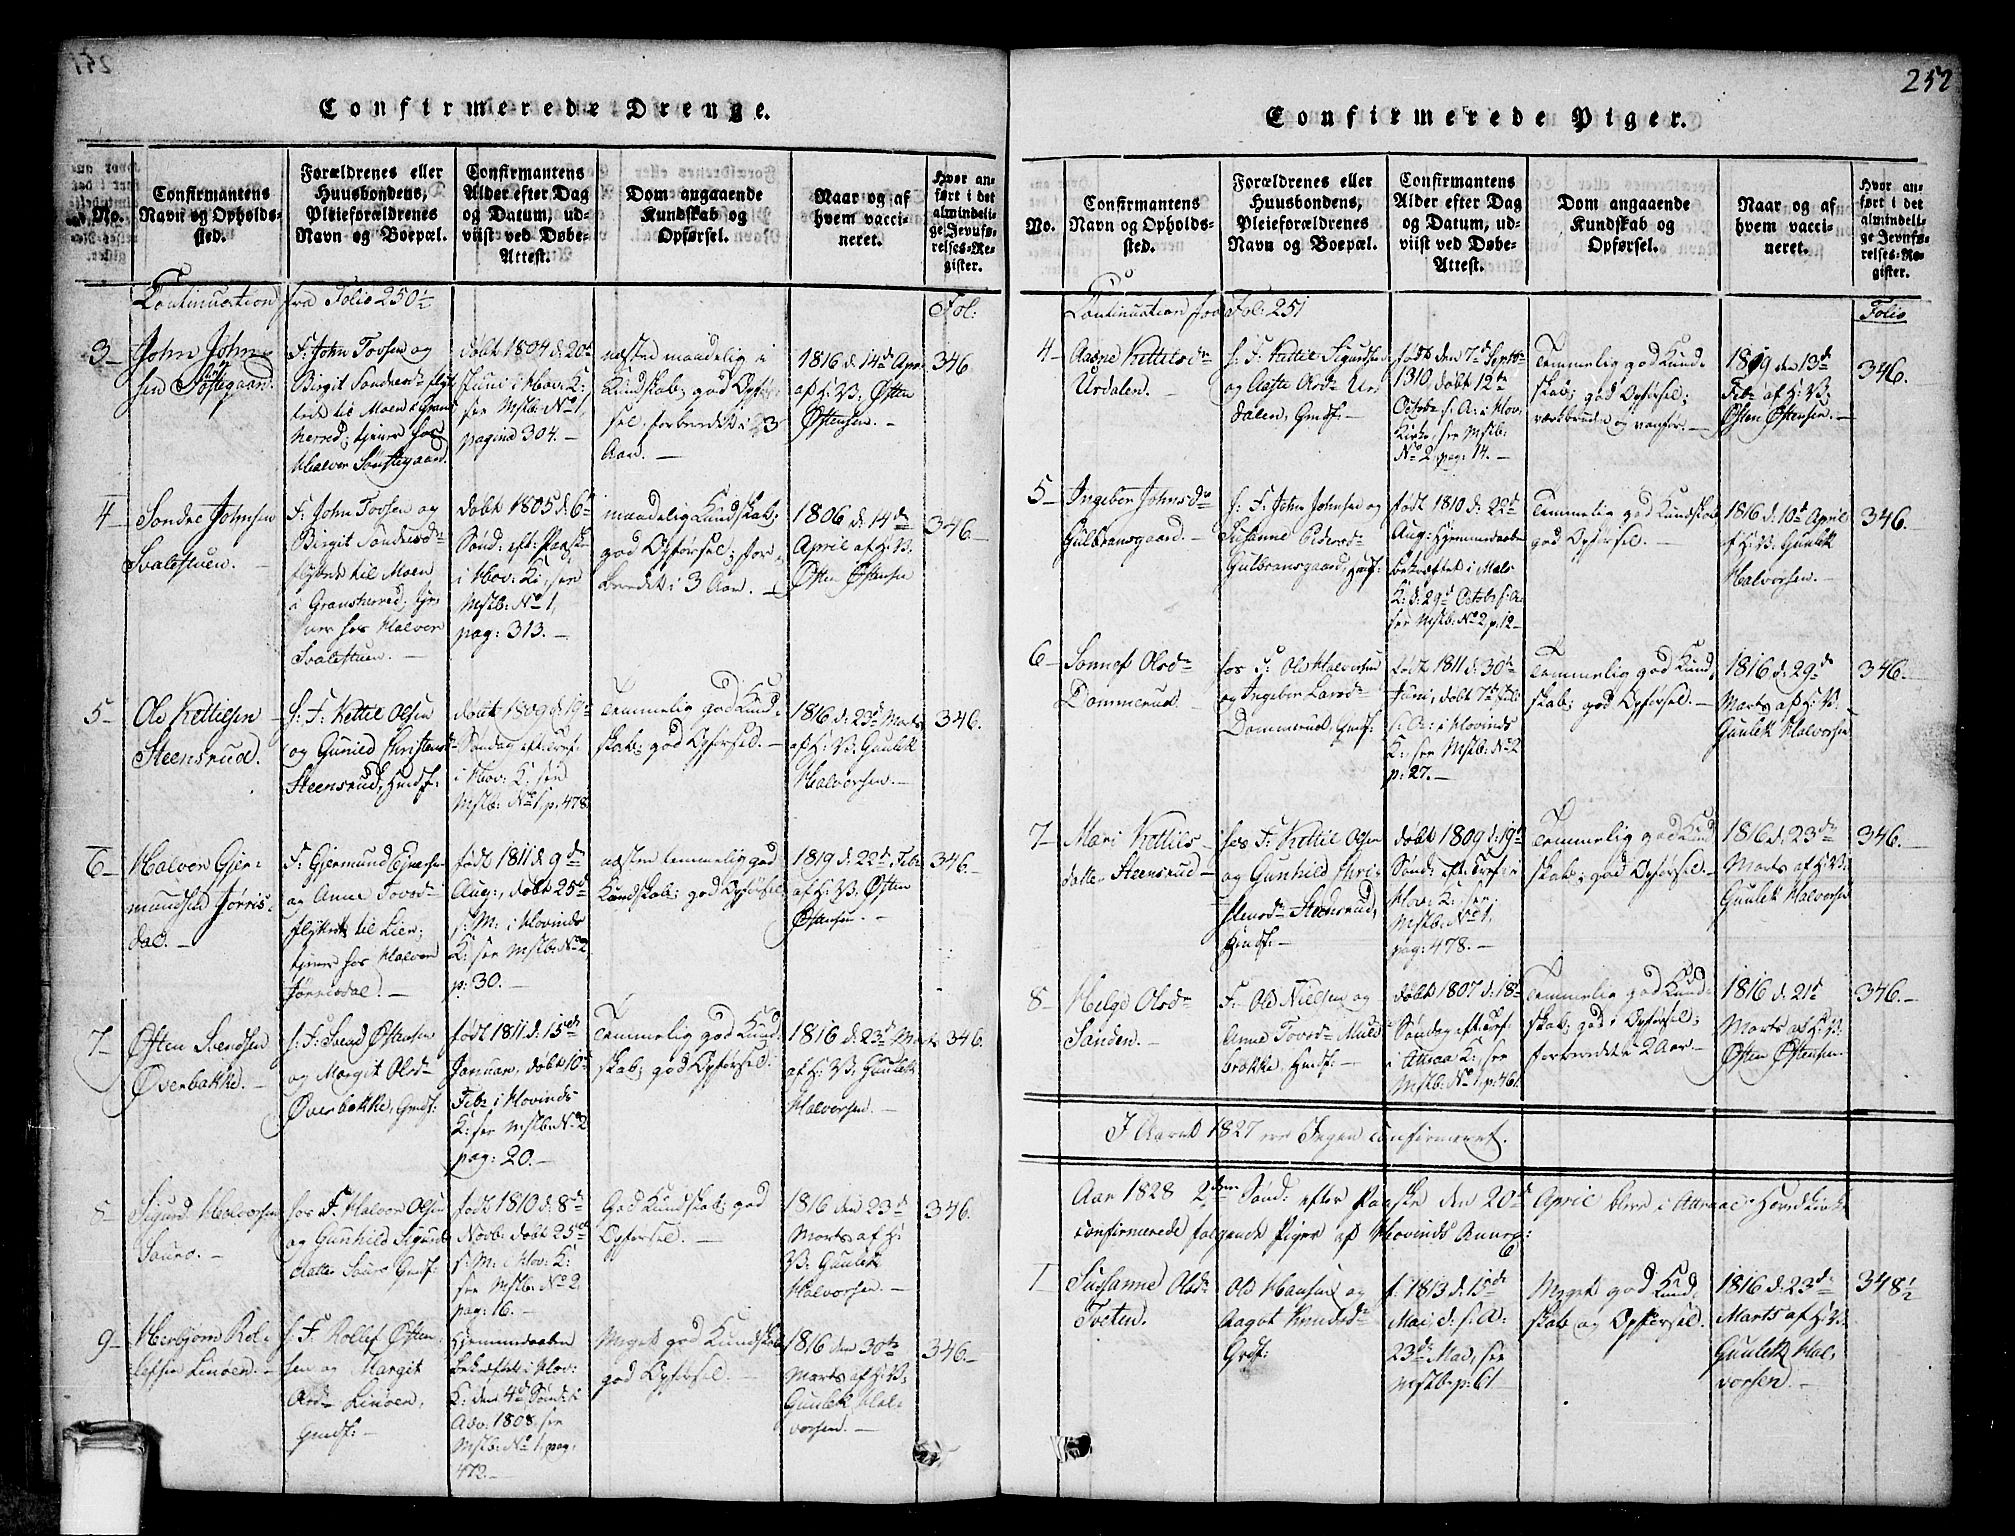 Confirmerede Drenge.
No.
Confirmantens
Navn og Opholds-
sted.
Forældrenes eller
Huusbondens,
Pleieforældrenes
Navn og Boepæl.
Confirmantens
Alder efter Dag
og Datum, ud-
viist ved Døbe-
Attest.
Dom angaaende
Kundskab og
Opførsel.
Naar og af
hvem vacci-
neret.
Hvor an-
ført i det
almindeli-
ge Jevnfø-
relses-Re-
gister.
Continuation fra Folio 250½
Fol:
3
John John-
sen
F: John Tovsen og
Birgit
til Moen i Grans-
herred; tjener hos
Halvor
døbt 1804 d. 20de
Juni i Hov: K:
see Mstb: No 1,
pagina 304.
næsten maadelig i
Kundskab; god Opfør-
sel. forberedt i 3
Aar.
1816 d. 14de Apr:
af H: V: Østen
Østensen.
346
4
Sondre Johnsen
Svalestuen.
F: John Tovsen og
Birgit Sondresd
flyttede til Moen
i Gransherred; tje-
ner hos Halvor
Svalestuen.
døbt 1805 d. 6te
Sønd: eft: Paaske
i Hov: K: see
Mstb: No 1,
pag: 313.
maadelig Kundskab;
god Opførsel; for-
beredt i 3 Aar.
1806 d. 14de
April af H: V:
Østen Østensen
346.
5
Ole Kettilsen
Steensrud.
s: F: Kettil Olsen
og Gunild Christensd
Steensrud, Huusf:
døbt 1809 d. 19de
Søndag eft: Tref:
i Hov: K: see
Mstb: No 1, p: 478.
Temmelig god Kund-
skab; god Opførsel.
1816 d. 23de Marts
af H: V: Gunlek
Halvorsen.
346.
6
Halvor Gjer-
mundsen Jørris-
dal.
F: Gjermund Ejnersen
og Anne Tovsd
flyttet til Lier;
tjener hos Halvor
Jørrisdal.
født 1811 d. 9de
Aug:, døbt 25de
s: M: i Hovinds
K: see Mstb: No 2
p: 30.
næsten temmelig god
Kundskab; god Opførsel.
1819 d. 22de Feb:
af H: V: Østen
Østensen.
346.
7
Østen Svendsen
Øverbakke.
s: F: Svend Østensen
og Margit Olsd
Øverbakke, Gmdf:
født 1811 d. 15de
Januar, døbt 10de
Feb: i Hovinds
K: see Mstb: No 2
pag: 20.
Temmelig god Kund-
skab; god Opførsel.
1816 d. 23de Marts
af H: V: Gunlek
Halvorsen.
346.
8
Sigurd Halvorsen
Saure.
hos F: Halvor Olsen
og Gunhild Sigurds-
datter Saure Gmdf:
født 1810 d. 8de
Novb: døbt 25de
s: M: i Hov: K:
see Mstb: No 2,
pag: 16.
God Kundskab; god
Opførsel.
1816 den 23de
Marts af H:
V: Gunlek
Halvorsen.
346.
9
Herbjørn Rol-
lefsen Linoen.
s: F: Rollef Østen-
sen og Margit
Olsd Linoen,
Gmdf:
Hjemmedaaben
bekræftet i Hov:
K: den 4de Sønd: i
Adv: 1808, see
Mstb: No 1, pag:
472.
Meget god Kundskab
god Opførsel.
1816 den 30te
Marts af H: V:
Gunlek Hal-
vorsen.
346.
252
Confirmerede Piger.
No.
Confirmantens
Navn og Opholds-
sted.
Forældrenes eller
Huusbondens,
Pleieforældrenes
Navn og Boepæl.
Confirmantens
Alder efter Dag
og Datum, ud-
viist ved Døbe-
Attest.
Dom angaaende
Kundskab og
Opførsel.
Naar og af
hvem vacci-
neret.
Hvor an-
ført i det
almindeli-
ge Jevnfø-
relses-Re-
gister.
Continuation fra Fol: 251
Folio
4
Aasne Kettilsdr
Urdalen.
s. F. Kettil Sigurdsen
og Aaste Olsdr Ur-
dalen, Gmdf:
født den 7de Septbr
1310, døbt 12te
Octobr s: A: i Hov:
Kirke, see Mstb:
No 2, pag: 14.
Temmelig god Kund-
skab; god Opførsel;
værkbruden og vanfør.
1819 den 13de
Febr af H: V:
Østen Østensen.
346.
5
Ingebor Johnsdr
Gulbransgaard.
s: F: John Johnsen og
Susanne Pedersd
Gulbransgaard,
født 1810 d: 22de
Aug: Hjemmedaaben
bekræftet i Mæls
K: d: 29de Octobr s: A:
see Mstb: No 2, p: 12
Temmelig god Kundskab
god Opførsel.
1816 d: 10de April
af H: V: Gunlek
Halvorsen.
346.
6
Sonnef Olsdr
Dommerud.
hos F: Ole Halvorsen
og Ingebor Larsdr
Dommerud, Gmdf:
født 1811 d. 30te
Juni, døbt 7de Juli
s: A: i Hovinds
K: see Mstb: No 2
p: 27.
Temmelig god Kund-
skab; god Opførsel.
1816 d. 29de
Marts af H: V:
Gunlek Halvorsen
346.
7
Mari Kettils-
datter Steensrud
hos F: Kettil Olsen
og Gunhild Chri-
stensdr Steensrud,
Huusf:
døbt 1809 d: 19de
Sønd: eft: Tref: i
Hov: K: see
Mstb: No 1,
pag: 478.
Temmelig god Kund-
skab; god Opførsel.
1816 d. 23de
Marts af H: V:
Gunlek Halvorsen
346.
8
Helge Olsdr
Sanden.
F: Ole Nielsen og
Anne Tovsdr
brække, Huusf:
døbt 1807 d. 18de
Søndag eft: Tref:
i Attraa K: see
Mstb: No 1, p: 461.
Temmelig god Kund-
skab; god Opførsel;
forberedt i 2 Aar.
1816 d. 21de
Marts af H: V:
Østen Østensen.
346.
I Aaret 1827 ere Ingen confirmeret.
Aar 1828 2den Sønd: efter Paaske den 20de April bleve i Attraae Hovedkirke
confirmerede følgende Piger af Hovinds Annex:
1
Susanne Olsdr
Tveten.
Ole Hansen og
Aagot Knudsdr
Grdf:
f: 1813 d. 13de
Mai, d. s. A:
23de Mai, see
Mstb: p: 61
Meget god Kund-
skab og Opførsel.
1816 d. 23de
Marts af H: V:
Gunlek Hal-
vorsen.
348½